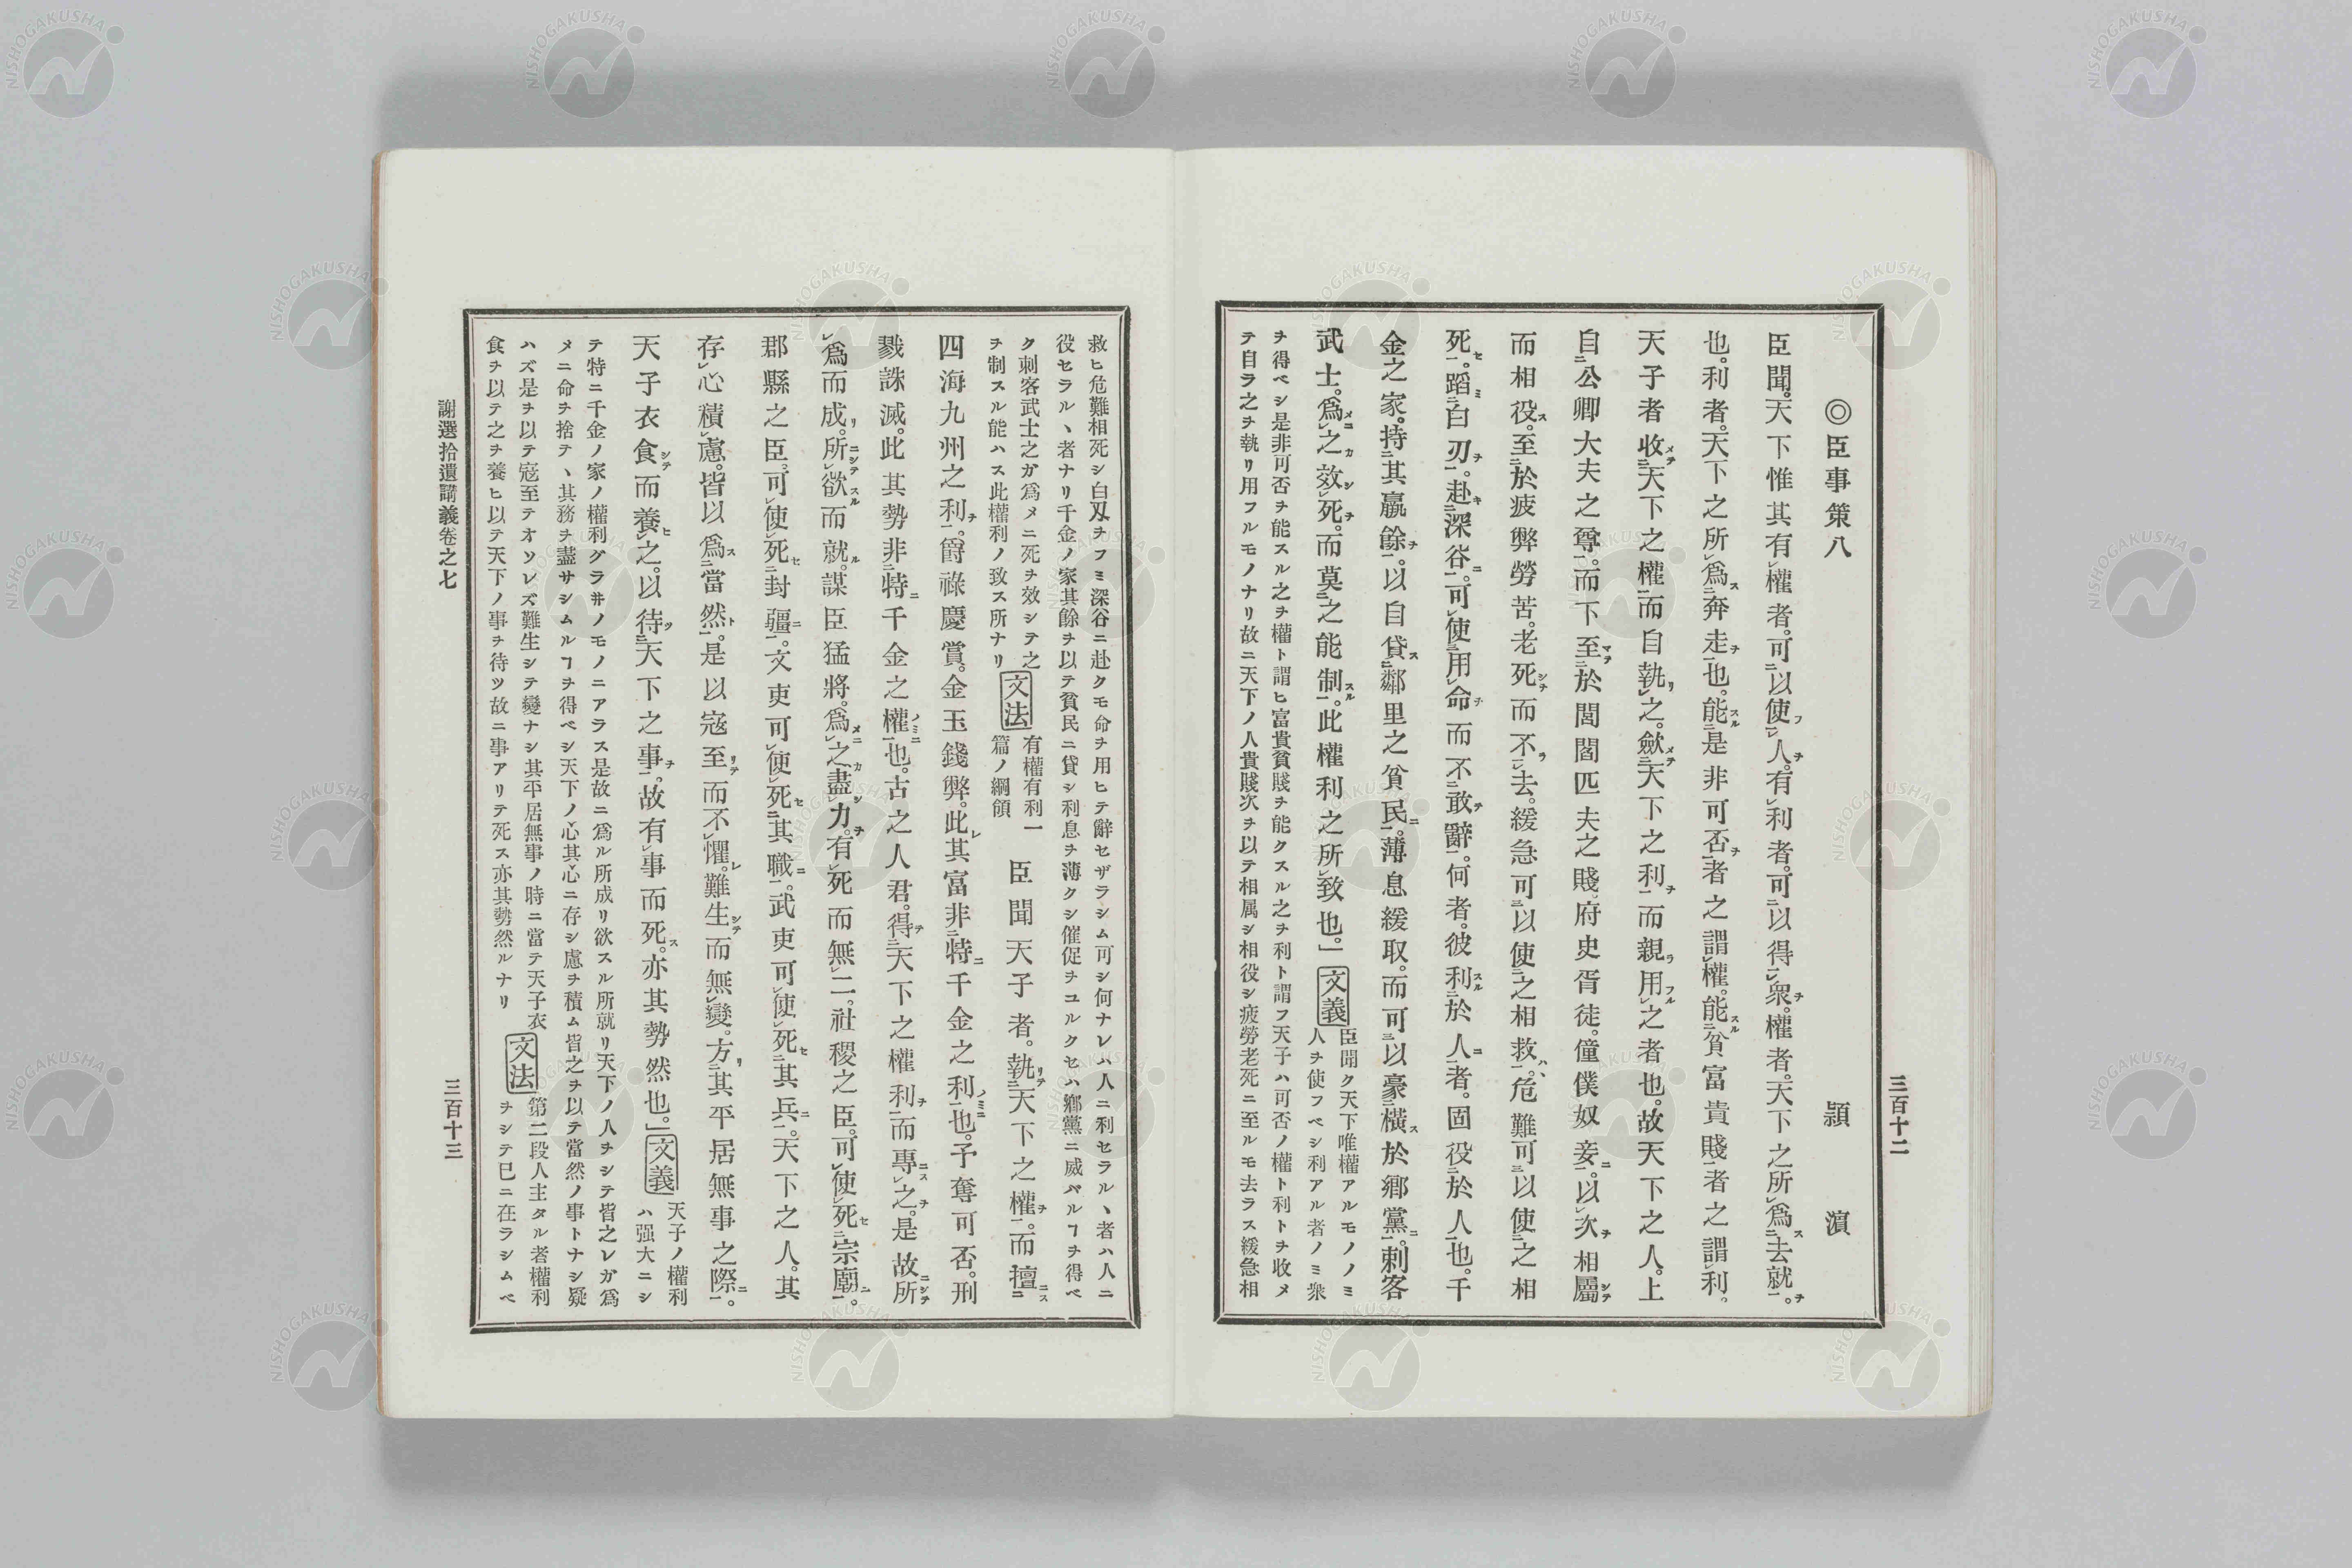 三百十二
◎臣事策八　潁濱
臣聞。天下惟其有權者。可以使人。有利者。可以得衆。權者。天下之所爲去就。
也。利者。天下之所爲奔走也。能是非可否者之謂權。能貧富貴賤者之謂利。
天子者收天下之權而自執之。歛天下之利而親用之者也。故天下之人。上
自公卿大夫之尊。而下至於閭閻匹夫之賤。府史胥徒。僮僕奴妾。以次相屬
而相役。至於疲弊勞苦。老死而不去。緩急可以使之相救。危難可以使之相
死。蹈白刃。赴深谷。可使用命而不敢辭。何者。彼利於人者。固役於人也。千
金之家。持其贏餘。以自貸鄰里之貧民。薄息緩取。而可以豪橫於鄉黨。刺客
武士。爲之效死。而莫之能制。此權利之所致也。」文義 臣聞ク天下唯權アルモノノミ
人ヲ使フベシ利アル者ノミ衆
ヲ得ベシ是非可否ヲ能スル之ヲ權ト謂ヒ富貴貧賤ヲ能クスル之ヲ利ト謂フ天子ハ可否ノ權ト利トヲ收メ
テ自ラ之ヲ執リ用フルモノナリ故ニ天下ノ人貴賤次ヲ以テ相属シ相役シ疲勞老死ニ至ルモ去ラス緩急相
救ヒ危難相死シ白刄ヲフミ深谷ニ赴クモ命ヲ用ヒテ辭セザラシム可シ何ナレハ人ニ利セラルヽ者ハ人ニ
役セラルヽ者ナリ千金ノ家其餘ヲ以テ貧民ニ貸シ利息ヲ薄クシ催促ヲユルクセハ鄉黨ニ威バルヿヲ得ベ
ク刺客武士之ガ爲メニ死ヲ效シテ之
ヲ制スル能ハス此權利ノ致ス所ナリ 文法 有權有利一
篇ノ綱領 臣聞天子者。執天下之權。而擅
四海九州之利。爵祿慶賞。金玉錢弊。此其富非特千金之利也。予奪可否。刑
戮誅滅。此其勢非特千金之權也。古之人君。得天下之權利而專之。是故所
爲而成。所欲而就。謀臣猛將。爲之盡力。有死而無二。社稷之臣。可使死宗廟。
郡縣之臣。可使死封疆。文吏可使死其職。武吏可使死其兵。天下之人。其
存心積慮。皆以爲當然。是以寇至而不懼。難生而無變。方其平居無事之際。
天子衣食而養之。以待天下之事。故有事而死。亦其勢然也。」文義 天子ノ權利
ハ强大ニシ
テ特ニ千金ノ家ノ權利グラ井ノモノニアラス是故ニ爲ル所成リ欲スル所就リ天下ノ人ヲシテ皆之レガ爲
メニ命ヲ捨テヽ其務ヲ盡サシムルヿヲ得ベシ天下ノ心其心ニ存シ慮ヲ積ム皆之ヲ以テ當然ノ事トナシ疑
ハズ是ヲ以テ寇至テオソレズ難生シテ變ナシ其平居無事ノ時ニ當テ天子衣
食ヲ以テ之ヲ養ヒ以テ天下ノ事ヲ待ツ故ニ事アリテ死ス亦其勢然ルナリ 文法 第二段人主タル者權利
ヲシテ已ニ在ラシムベ
謝選拾遺講義卷之七
三百十三
NISHOGAKUSHA